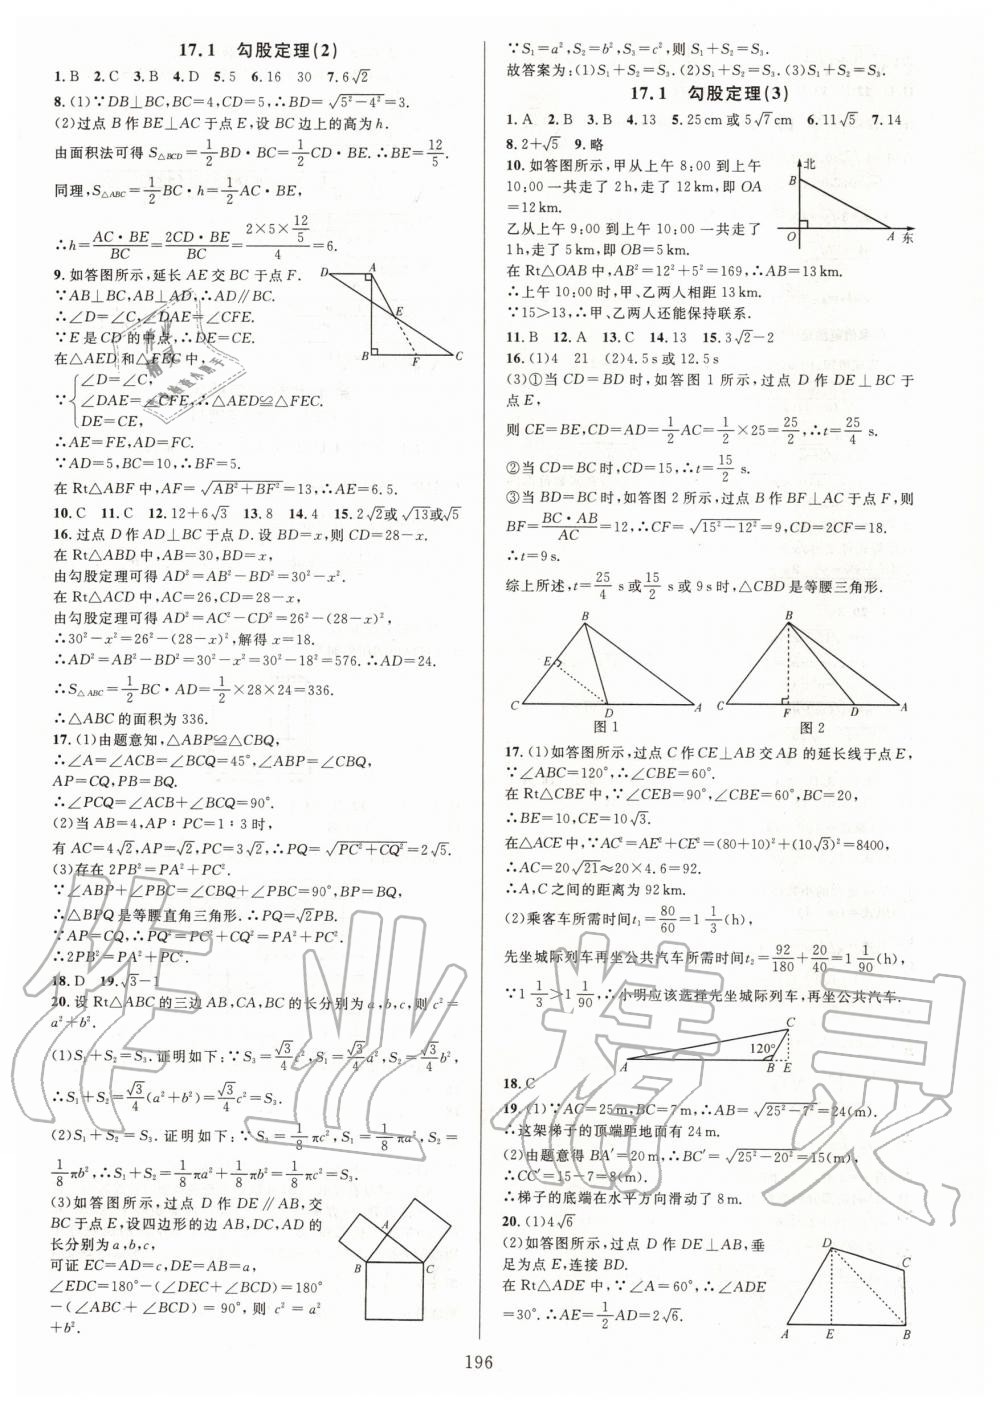 17.1 勾股定理(2)
1. B 2. C 3. B 4. D 5. 5 6. 16 30 7. 6√2
8. (1)∵DB⊥BC,BC=4,CD=5,∴BD=√(5²-4²)=3.
(2)过点 B 作 BE⊥AC 于点 E,设 BC 边上的高为 h.
由面积法可得 S△BCD=1/2 BD·BC=1/2 CD·BE.∴BE=12/5.
同理,S△ABC=1/2 BC·h=1/2 AC·BE,
∴h=AC·BE/BC=2CD·BE/BC=(2×5×12/5)/4=6.
9. 如答图所示,延长 AE 交 BC 于点 F.
∵AB⊥BC,AB⊥AD,∴AD∥BC.
∴∠D=∠C,∠DAE=∠CFE.
∵E 是 CD 的中点,∴DE=CE.
在△AED 和△FEC 中,
∵{∠D=∠C,
∠DAE=∠CFE,∴△AED≌△FEC.
DE=CE,
∴AE=FE,AD=FC.
∵AD=5,BC=10,∴BF=5.
在 Rt△ABF 中,AF=√(AB²+BF²)=13,∴AE=6.5.
D A E B F C
10. C 11. C 12. 12+6√3 13. 8 14. 4 15. 2√2或√13或√5
16. 过点 D 作 AD⊥BC 于点 D. 设 BD=x,则 CD=28-x.
在 Rt△ABD 中,AB=30,BD=x,
由勾股定理可得 AD²=AB²-BD²=30²-x².
在 Rt△ACD 中,AC=26,CD=28-x,
由勾股定理可得 AD²=AC²-CD²=26²-(28-x)²,
∴30²-x²=26²-(28-x)²,解得 x=18.
∴AD²=AB²-BD²=30²-x²=30²-18²=576.∴AD=24.
∴S△ABC=1/2 BC·AD=1/2×28×24=336.
∴△ABC 的面积为 336.
17. (1)由题意知,△ABP≌△CBQ,
∴∠A=∠ACB=∠BCQ=45°,∠ABP=∠CBQ,
AP=CQ,PB=BQ.
∴∠PCQ=∠ACB+∠BCQ=90°.
(2)当 AB=4,AP∶PC=1∶3 时,
有 AC=4√2,AP=√2,PC=3√2,∴PQ=√(PC²+CQ²)=2√5.
(3)存在 2PB²=PA²+PC².
∵∠ABP+∠PBC=∠CBQ+∠PBC=90°,BP=BQ,
∴△BPQ 是等腰直角三角形.∴PQ=√2PB.
∵AP=CQ,∴PQ²=PC²+CQ²=PA²+PC².
∴2PB²=PA²+PC².
18. D 19. √3-1
20. 设 Rt△ABC 的三边 AB,CA,BC 的长分别为 a,b,c,则 c²=
a²+b².
(1)S₁+S₂=S₃. 证明如下:∵S₃=√3/4 c²,S₁=√3/4 a²,S₂=√3/4 b²,
∴S₁+S₂=√3/4(a²+b²)=√3/4 c²=S₃.
(2)S₁+S₂=S₃. 证明如下:∵S₃=1/8 πc²,S₁=1/8 πa²,S₂=
1/8 πb²,∴S₁+S₂=1/8 πa²+1/8 πb²=1/8 πc²=S₃.
(3)如答图所示,过点 D 作 DE∥AB,交
BC 于点 E,设四边形的边 AB,DC,AD 的
长分别为 a,b,c,
可证 EC=AD=c,DE=AB=a,
∠EDC=180°-(∠DEC+∠BCD)=180°
-(∠ABC+∠BCD)=90°,则 c²=a²
+b².
A B C
∵S₁=a²,S₂=b²,S₃=c²,则 S₁+S₂=S₃.
故答案为:(1)S₁+S₂=S₃. (2)S₁+S₂=S₃. (3)S₁+S₂=S₃.
17.1 勾股定理(3)
1. A 2. B 3. B 4. 13 5. 25 cm 或 5√7 cm 6. 11√5 7. 14
8. 2+√5 9. 略
10. 如答图所示,甲从上午 8:00 到上午
10:00 一共走了 2 h,走了 12 km,即 OA
=12 km.
乙从上午 9:00 到上午 10:00 一共走了
1 h,走了 5 km,即 OB=5 km.
在 Rt△OAB 中,AB²=12²+5²=169,∴AB=13 km.
∴上午 10:00 时,甲、乙两人相距 13 km.
∵15>13,∴甲、乙两人还能保持联系.
北 B O A 东
11. B 12. A 13. C 14. 13 15. 3√2-2
16. (1)4 21 (2)4.5 s 或 12.5 s
(3)①当 CD=BD 时,如答图 1 所示,过点 D 作 DE⊥BC 于
点 E,
则 CE=BE,CD=AD=1/2 AC=1/2×25=25/2,∴t=25/4 s.
②当 CD=BC 时,CD=15,∴t=15/2 s.
③当 BD=BC 时,如答图 2 所示,过点 B 作 BF⊥AC 于点 F,则
BF=BC·AB/AC=12,∴CF=√(15²-12²)=9,CD=2CF=18.
∴t=9 s.
综上所述,t=25/4 s 或15/2 s 或 9 s 时,△CBD 是等腰三角形.
B E C D A
图 1
B C F D A
图 2
17. (1)如答图所示,过点 C 作 CE⊥AB 交 AB 的延长线于点 E,
∵∠ABC=120°,∴∠CBE=60°.
在 Rt△CBE 中,∵∠CEB=90°,∠CBE=60°,BC=20,
∴BE=10,CE=10√3.
在△ACE 中,∵AC²=AE²+CE²=(80+10)²+(10√3)²=8400,
∴AC=20√21≈20×4.6=92.
∴A,C 之间的距离为 92 km.
(2)乘客车所需时间t₁=80/60=1 1/3(h),
先坐城际列车再坐公共汽车所需时间t₂=92/180+20/40=1 1/90(h),
∵1 1/3>1 1/90,∴小明应该选择先坐城际列车,再坐公共汽车.
C 120° A B E
18. C
19. (1)∵AC=25 m,BC=7 m,∴AB=√(25²-7²)=24(m).
∴这架梯子的顶端距地面有 24 m.
(2)由题意得 BA′=20 m,∴BC′=√(25²-20²)=15(m),
∴CC′=15-7=8(m).
∴梯子的底端在水平方向滑动了 8 m.
20. (1)4√6
(2)如答图所示,过点 D 作 DE⊥AB,垂
足为点 E,连接 BD.
在 Rt△ADE 中,∵∠A=60°,∴∠ADE
=30°.∴AE=1/2 AD=2√6.
D C A E B
196
作业精灵